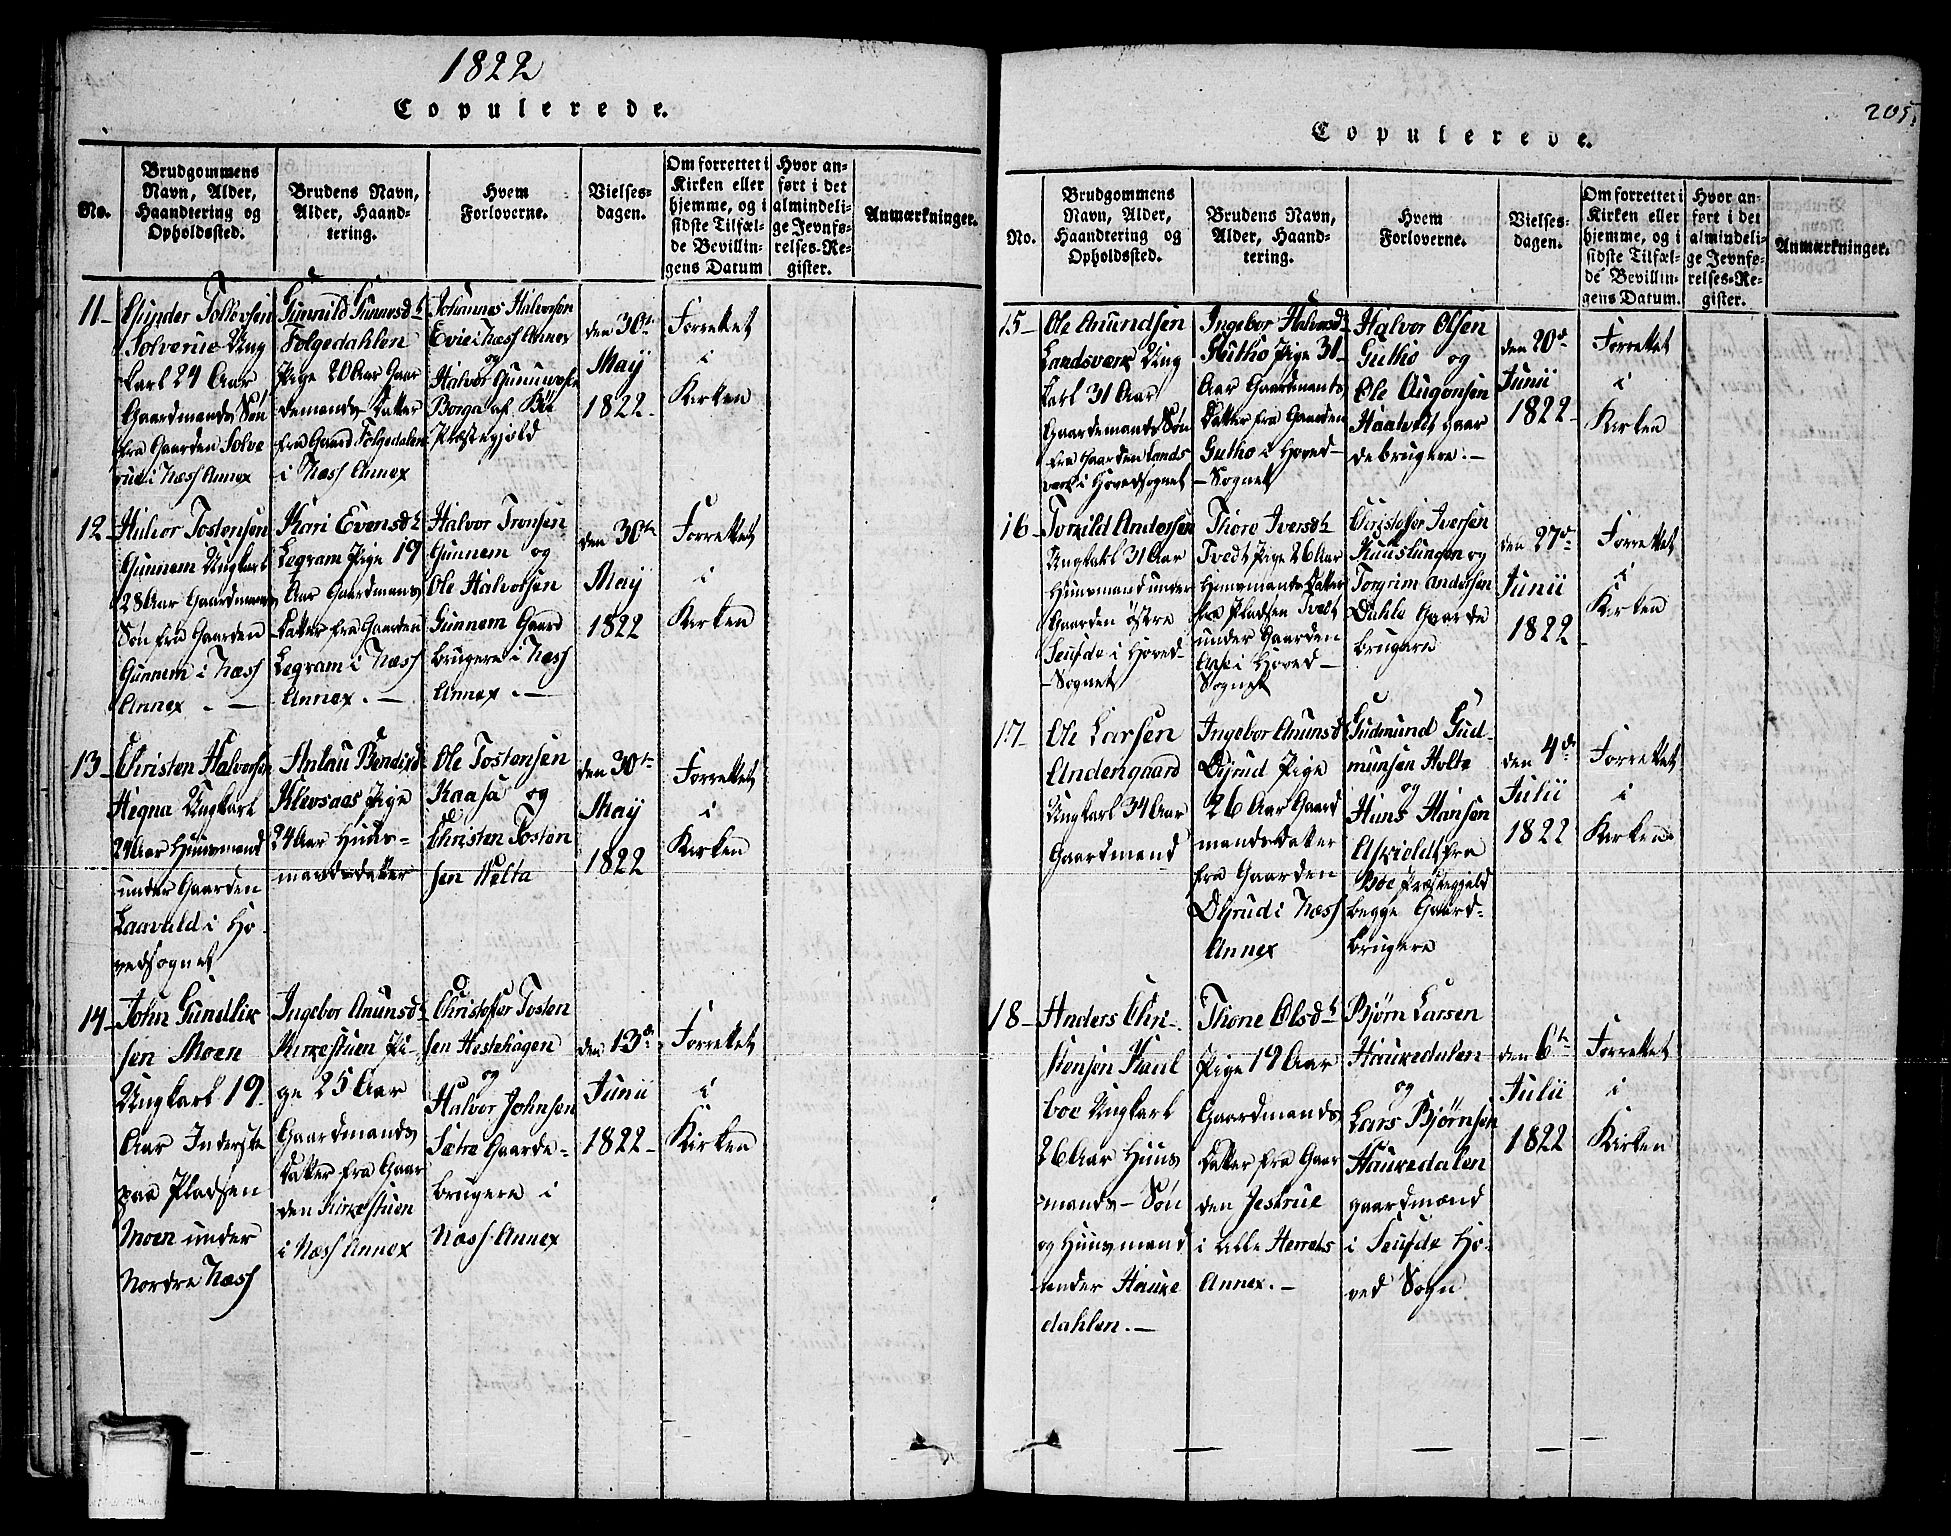 1822
Copulerede.
No.
Brudgommens
Navn, Alder,
Haandtering og
Opholdssted.
Brudens Navn,
Alder, Haand-
tering.
Hvem
Forloverne.
Vielses-
dagen.
Om forrettet i
Kirken eller
hjemme, og i
sidste Tilfæl-
de Bevillin-
gens Datum
Hvor an-
ført i det
almindeli-
ge Jevnfø-
relses-Re-
gister.
Anmærkninger.
11-
Tollefsen
Solverue Ung
karl 24 Aar
Gaardmands Søn
fra Gaarden Solve
rue i Næss Annex
Gunnild Gunnersd.
Folgedahlen
Pige 20 Aar Gaar
demands Datter
fra Gaard Folgedalen
i Næss Annex
Johannes Halvorsen
Evie i Næss Annex
og
Halvor
Borga af Böe
Præstegjeld
den 30te
Maij
1822-
Forrettet
i
Kirken
12-
Halvor Tostensen
Gunnem Ungkarl
28 Aar Gaardmands
Søn fra Gaarden
Gunnem i Næss
Annex. -
Kari Evensd.
Legram Pige 19
Aar Gaardmands
Datter fra Gaarden
Legram i Næss
Annex. -
Halvor Tronsen
Gunnem og
Ole Halvorsen
Gunnem Gaard
brugere i Næss
Annex. -
den 30te
Maij
1822
Forrettet
i
Kirken
13-
Christen Halvorsen
Hegna Ungkarl
24 Aar Huusmand
under Gaarden
Laavald i Ho
vedsognet
Aslau Bendixd
Klevsaas Pige
24 Aar Huus-
mandsdatter
Ole Tostensen
Kaasa og
Christen Tosten
sen Holta
den 30te
Maij
1822
Forrettet
i
Kirken
14-
John Gundlik
sen Moen
Ungkarl 19
Aar Inderste
paa Pladsen
Moen under
Nordre Næss
Ingebor Anunsd.
Kirkestuen Pi-
ge 25 Aar
Gaardmands
Datter fra Gaar
den Kirkestuen
i Næss Annex
Christoffer Tosten
sen Hestehagen
og
Halvor Johnsen
Sætre Gaarde-
brugere i
Næss Annex
den 13de
Junii
1822-
Forrettet
i
Kirken
205.
Copulerede.
No.
Brudgommens
Navn, Alder,
Haandtering og
Opholdssted.
Brudens Navn,
Alder, Haand-
tering.
Hvem
Forloverne.
Vielses-
dagen.
Om forrettet i
Kirken eller
hjemme, og i
sidste Tilfæl-
de Bevillin-
gens Datum.
Hvor an-
ført i det
almindeli-
ge Jevnfø-
relses-Re-
gister.
Anmærkninger.
15-
Ole Anundsen
Landsværk Ung
karl 31 Aar
Gaardemands Søn
fra Gaarden Lands
værk i Hovedsognet
Ingebor Halvorsd
Gutho Pige 31
Aar Gaardmands
Datter fra Gaarden
Gutho i Hoved-
-Sognet
Halvor Olsen
Gutho og
Ole Augonsen
Haatvedt gaar
debrugere. -
den 20de
Junii
1822-
Forrettet
i
Kirken
16-
Torkild Andersen
Ungkarl 31 Aar
Huusmand under
Gaarden østre
Seufde i Hoved-
-Sognet
Thore Iversd.
Tvedt Pige 26 Aar
Huusmands Datter
fra Pladsen Tvedt
under Gaarden
i Hoved-
Sognet
Christoffer Iversen
og
Torgrim Andersen
Dahle Gaarde
brugere
den 27de
Junii
1822-
Forrettet
i
Kirken
17-
Ole Larsen
Andersgaard
Ungkarl 34 Aar
Gaardmand
Ingebor Anunsd
Pige
26 Aar Gaard
mandsdatter
fra Gaarden
i Næss
Annex
Gudmund Gud-
munsen Holte
og
Hans Hansen
Askildt fra
Böe Præstegjeld
begge Gaard-
brugere
den 4de
Julii
1822
Forrettet
i
Kirken
18-
Anders Chri-
stensen Haul
boe Ungkarl
26 Aar Huus
-mands-Søn
og Huusmand
under Hauke
dahlen. -
Thone Olsd.
Pige 19 Aar
Gaardmands
Datter fra Gaar
den Jeskrue
i Lille Herrets
Annex. -
Bjørn Larsen
Haukedalen
og
Lars Bjørnsen
Haukedalen
gaardmænd
i Seufde Ho-
ved Sogn
den 6te
Julii
1822
Forrettet
i
Kirken